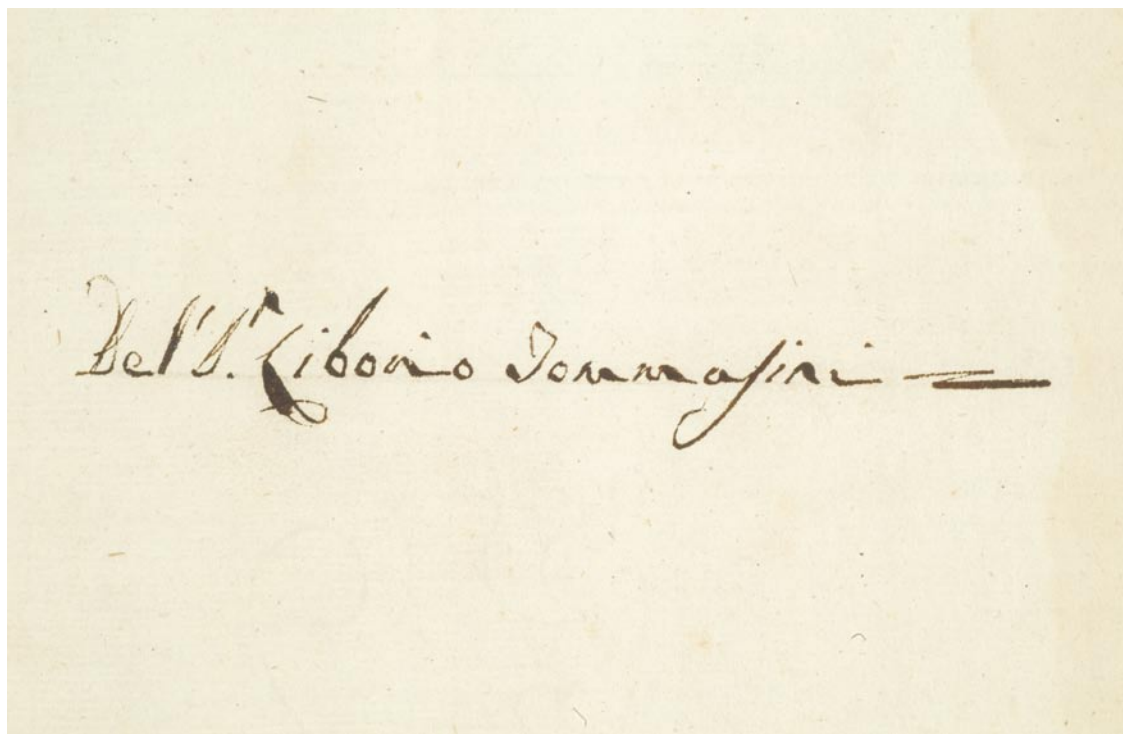 Del' S.r Liborio Tommasini